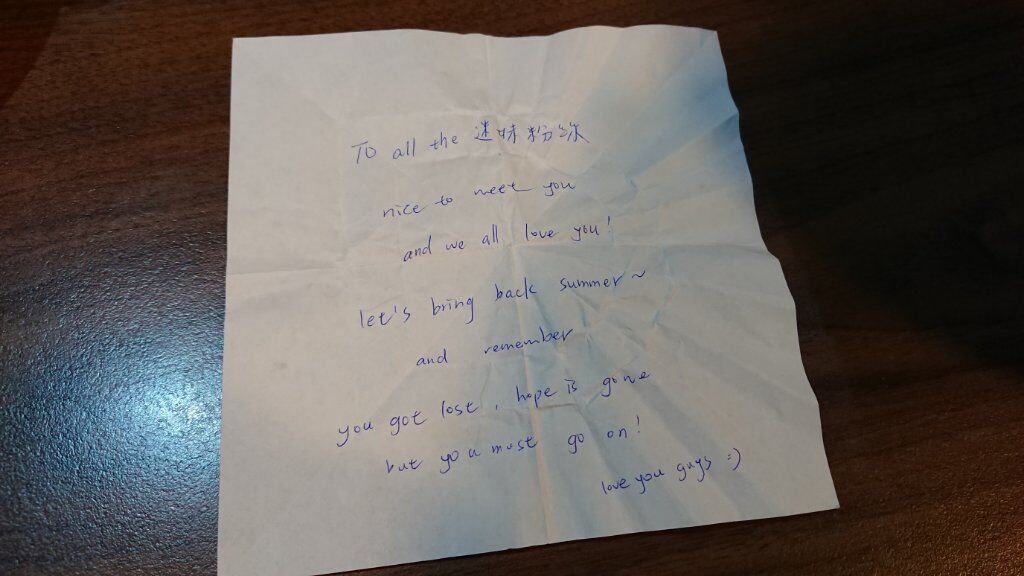 To all the 迷妹粉絲
nice to meet you
and we all love you!
let's bring back summer~
and remember
you got lost, hope is gone
but you must go on!
love you guys :)